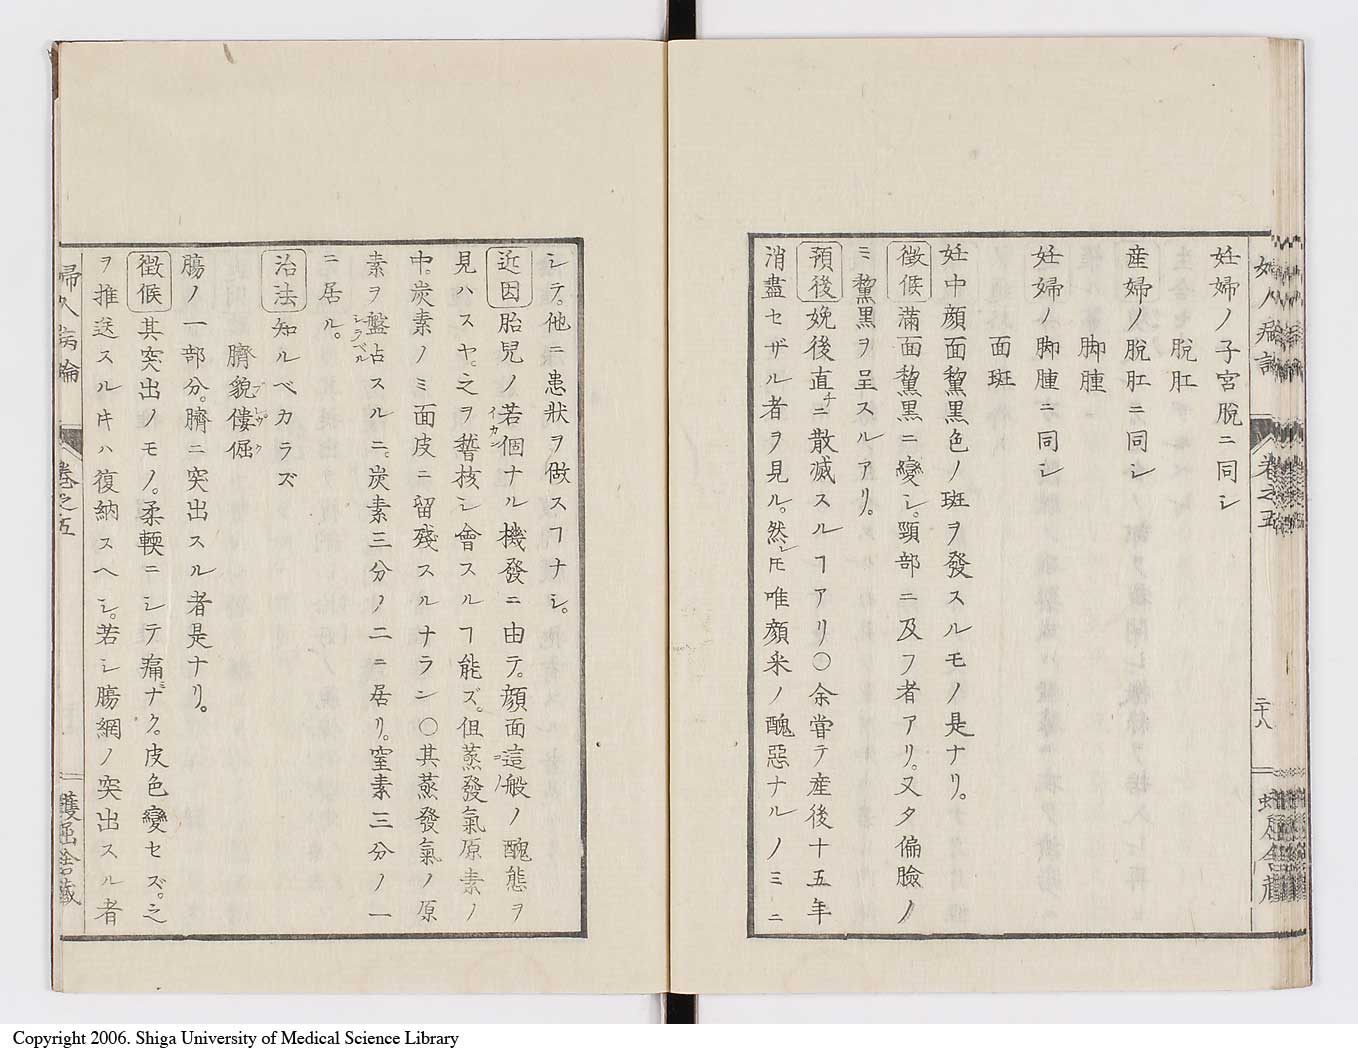 妊婦ノ子宮脫ニ同シ
脫肛
産婦ノ脫肛ニ同シ
脚腫
妊婦ノ脚腫ニ同シ
面斑
妊中顔面黧黒色ノ斑ヲ發スルモノ是ナリ。
徴候 滿面黧黒ニ變シ。頸部ニ及フ者アリ。又タ偏臉ノ
ミ黧黒ヲ呈スルアリ。
預後 娩後直チニ散滅スルヿアリ〇余嘗テ産後十五年
消盡セザル者ヲ見ル。然レ𪜈唯顔釆ノ醜惡ナルノミニ
婦人病論
卷之五
二十八
シテ。他ニ患狀ヲ做スヿナシ。
近因 胎兒ノ若個イカンナル機發ニ由テ。顔面這コノ般ノ醜態ヲ
見ハスヤ。之ヲ誓核シ會スルヿ能ズ。但蒸發氣原素ノ
中。炭素ノミ面皮ニ留殘スルナラン〇其蒸發氣ノ原
素ヲ盤占シラベルスルニ。炭素三分ノ二ニ居リ。窒素三分ノ一
ニ居ル。
治法 知ルベカラズ
臍貌僂倔
膓ノ一部分。臍ニ突出スル者是ナリ。
徴候 其突出ノモノ。柔輭ニシテ痛ミナク。皮色變セズ。之
ヲ推送スル𪜈ハ復納スヘシ。若シ膓網ノ突出スル者
婦人病論
卷之五
Copyright 2006. Shiga University of Medical Science Library